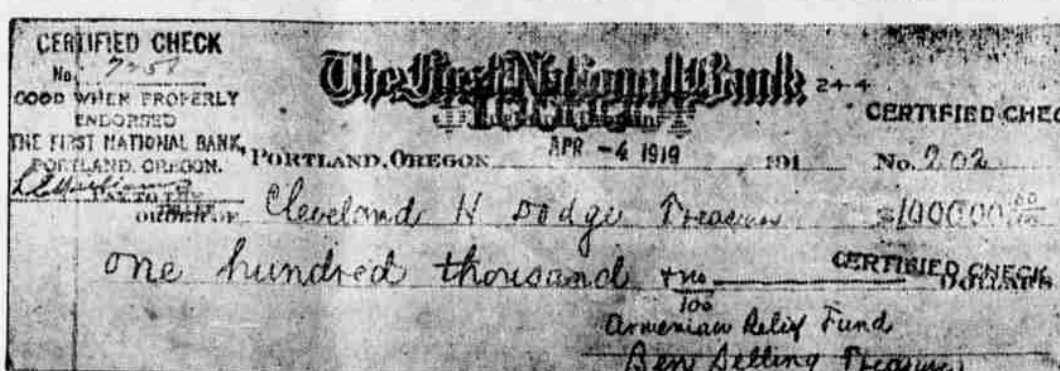 CERTIFIED CHECK
No. 7258
GOOD WHEN PROPERLY
ENDORSED
THE FIRST NATIONAL BANK,
PORTLAND, OREGON.
The First National Bank 24-4
CERTIFIED CHEC
PORTLAND, OREGON APR -4 1919 191 No. 202
PAY TO THE
ORDER OF Cleveland H Dodge Treasurer $100000 00/100
one hundred thousand + no/100 DOLLARS
CERTIFIED CHECK
Armenian Relief Fund
Ben Selling Treasurer